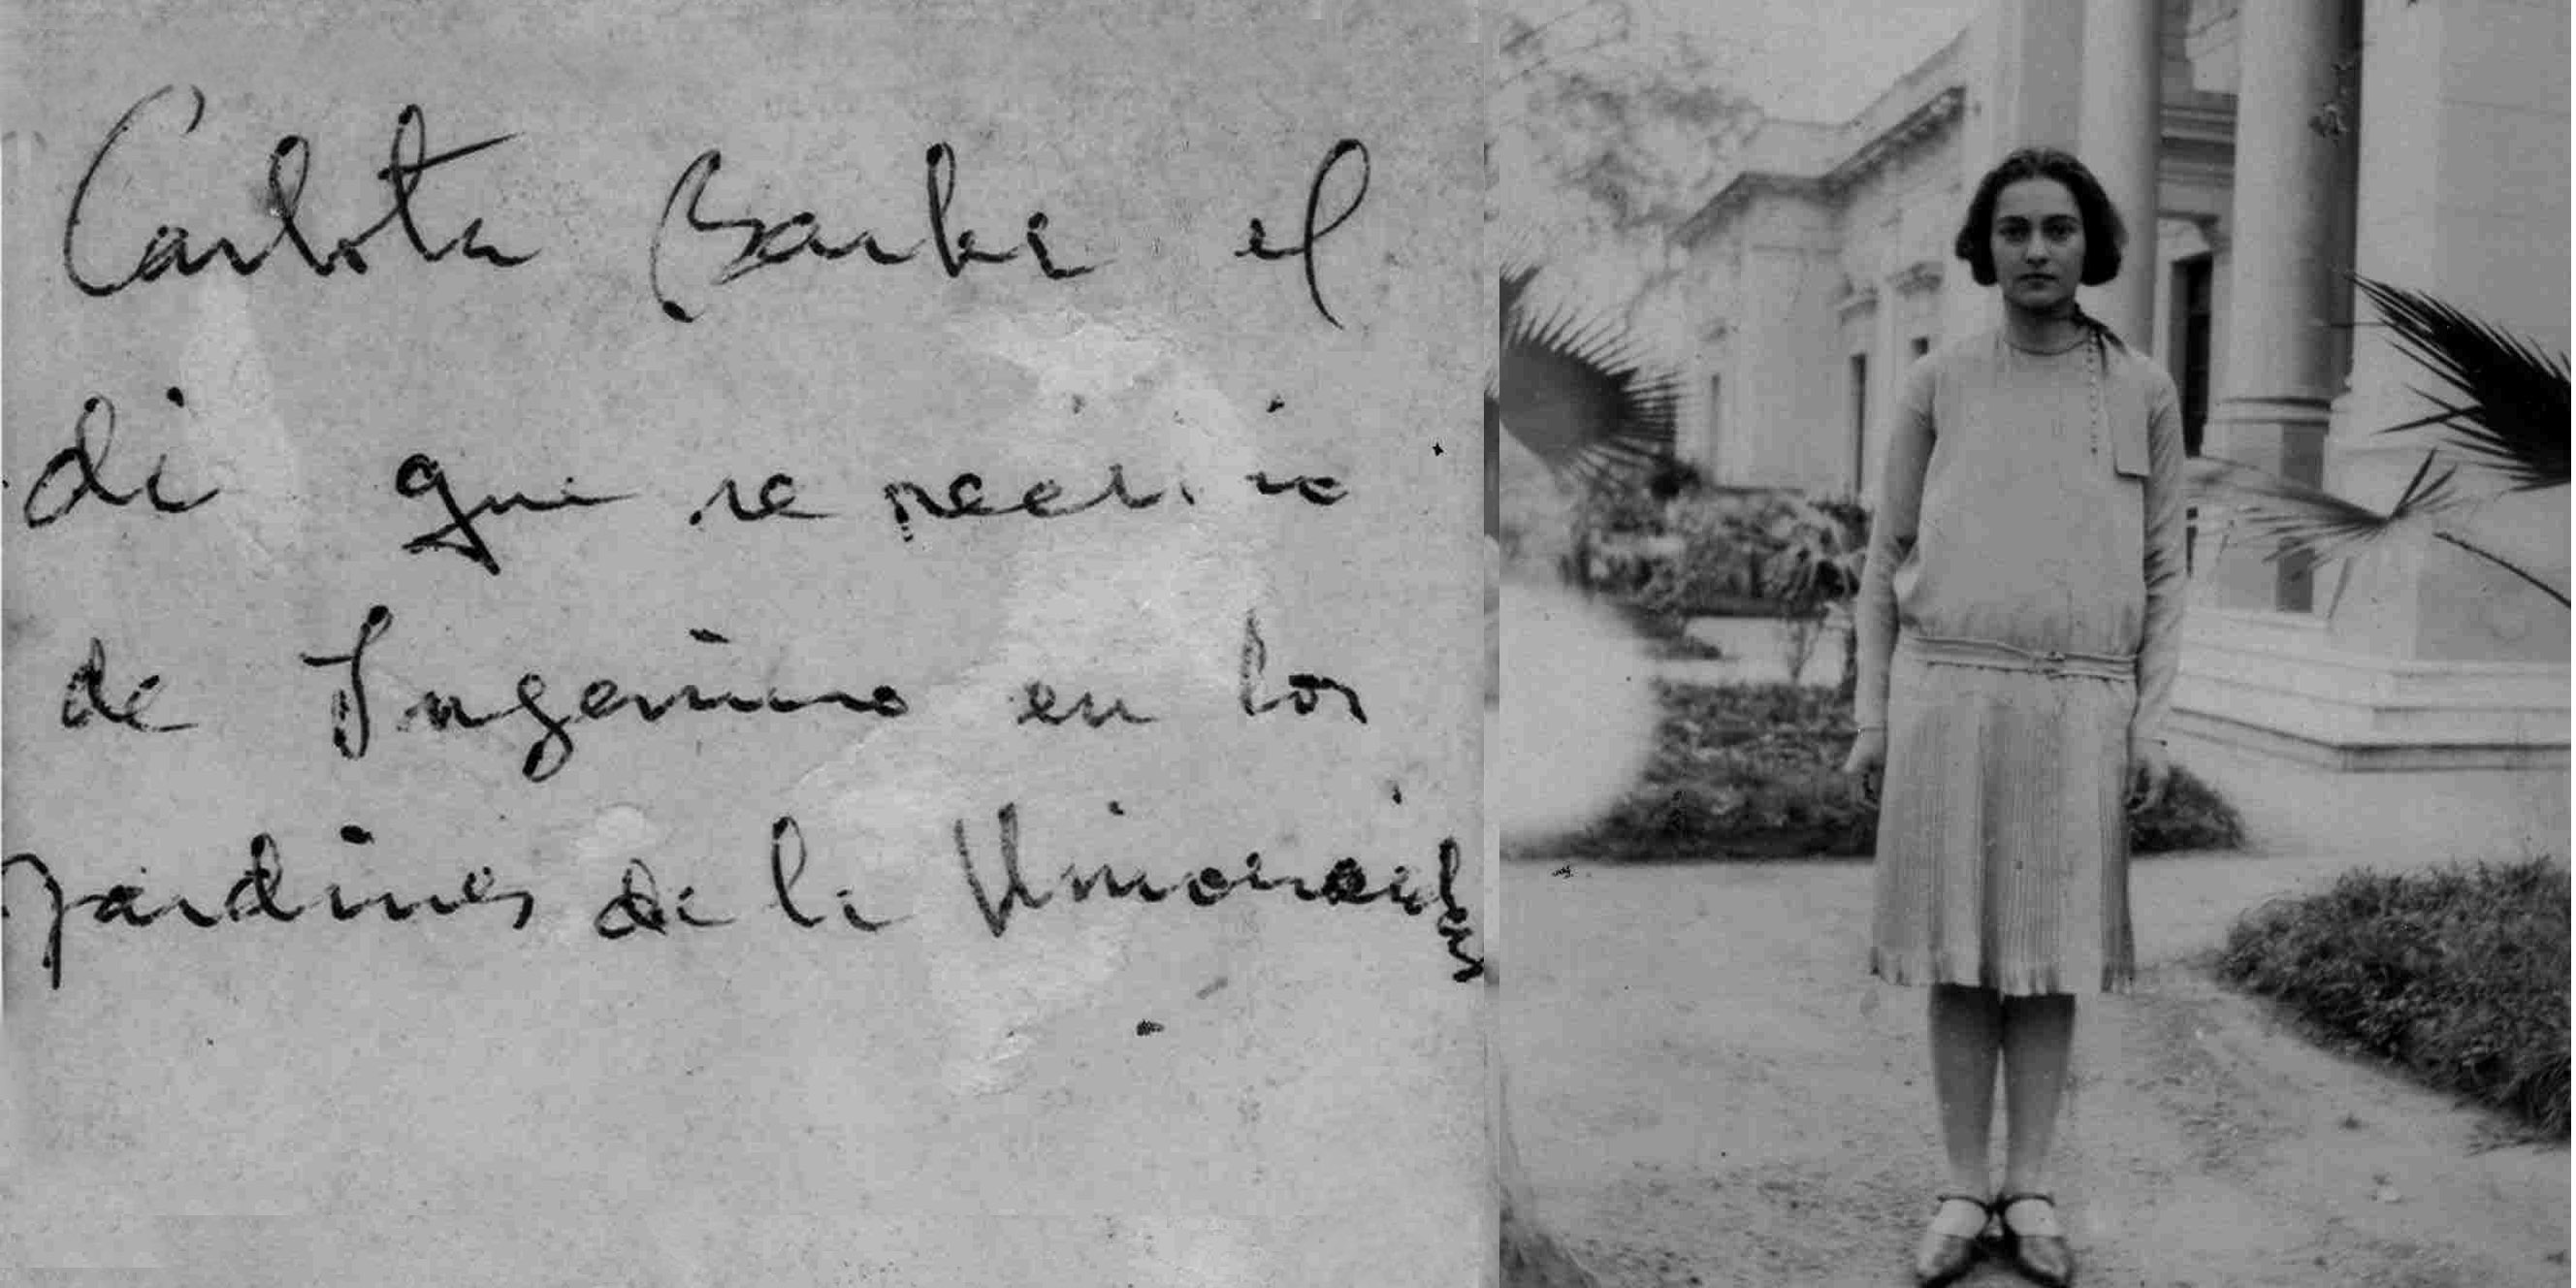 Carlota Barba el
dia que se recibio
de Ingeniero en los
jardines de la Universidad